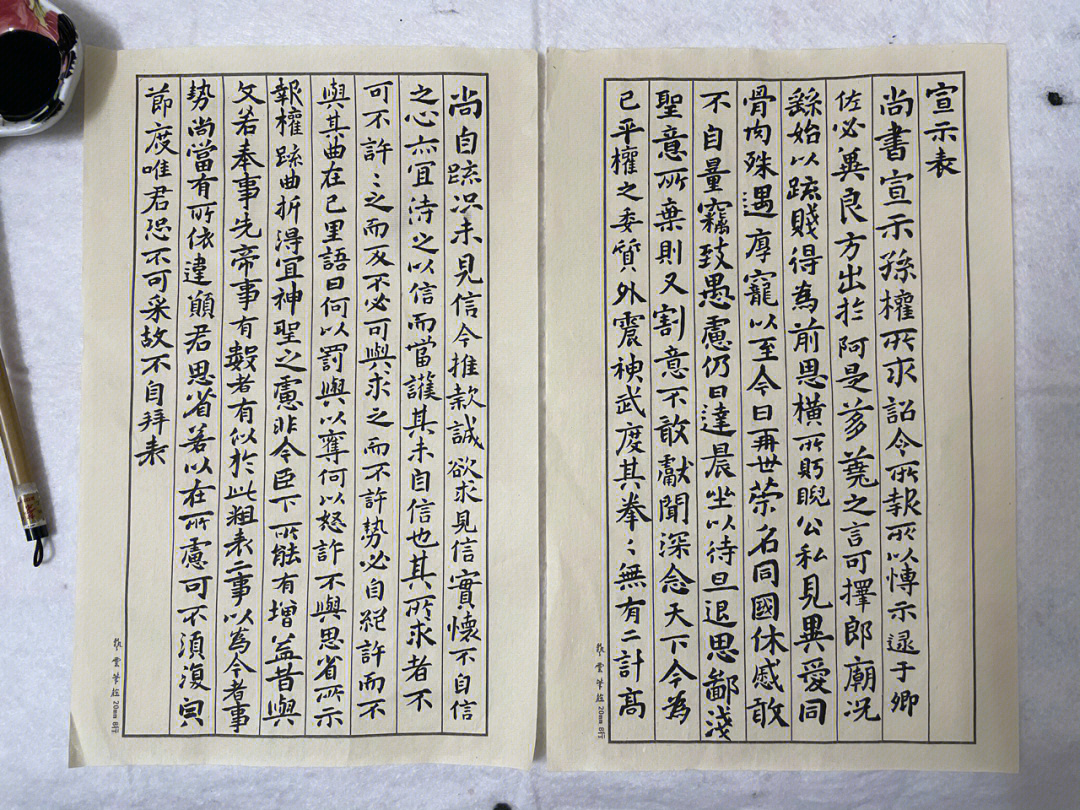 宣示表
尚書宣示孫權所求詔令所報所以博示逮于卿
佐必冀良方出於阿是芻蕘之言可擇郎廟況
繇始以疏賤得為前恩橫所眄睨公私見異愛同
骨肉殊遇厚寵以至今日再世荣名同國休慼敢
不自量竊致愚慮仍日達晨坐以待旦退思鄙淺
聖意所棄則又割意不敢獻聞深念天下今為
已平權之委質外震神武度其拳〻無有二計高
尚自疏况未見信今推款誠欲求見信實懷不自信
之心亦冝待之以信而當護其未自信也其所求者不
可不許〻之而反不必可與求之而不許勢必自絕許而不
與其曲在己里語曰何以罰與以奪何以怒許不與思省所示
報權疏曲折得冝神聖之慮非今臣下所能有增益昔與
文若奉事先帝事有數者有似於此粗表二事以為今者事
勢尚當有所依違願君思省若以在所慮可不須復皃
節度唯君恐不可采故不自拜表